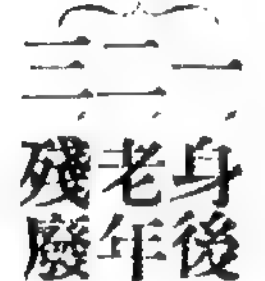 一、身後
二、老年
三、殘廢